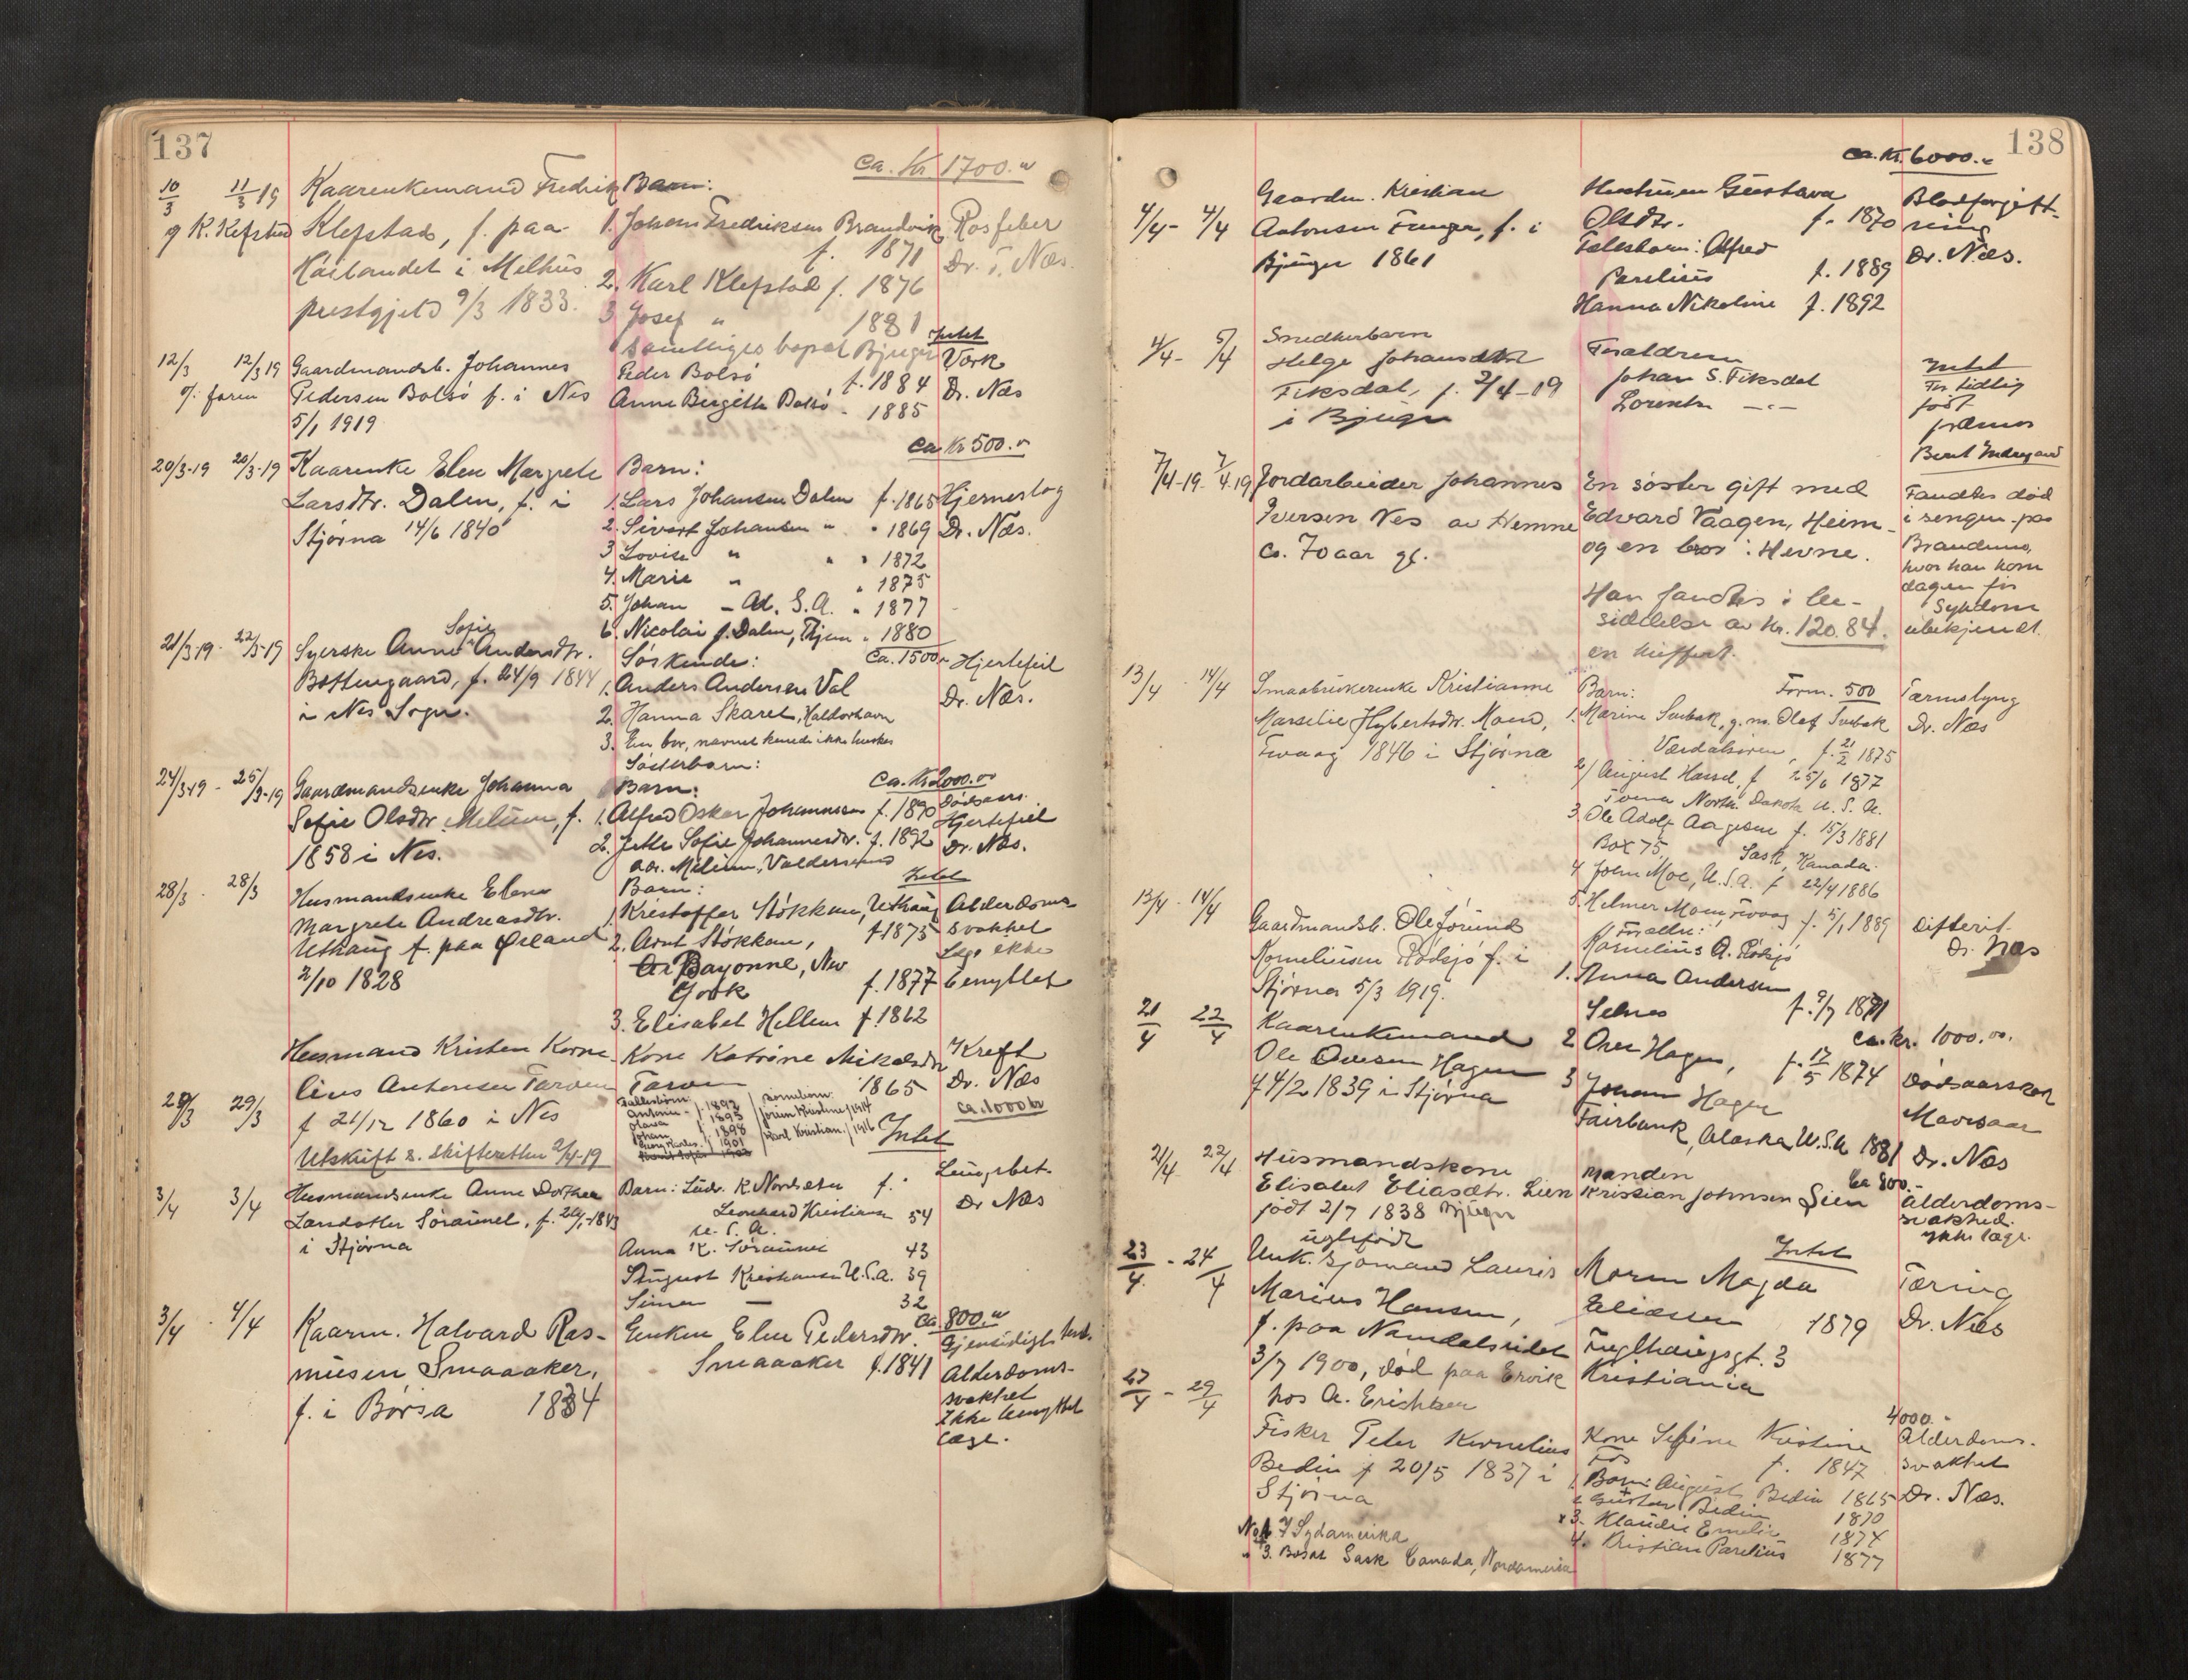 137
ca. Kr 1700.
10/3 11/3 19 Kaarenkemand Fredrik Barn:
Klefstad, f. paa 1. Johan Fredriksen Brandvik Rosfeber
f. 1871 Dr. Næs.
i Melhus 2. Karl Klefstad f. 1876
prestgjeld 9/3 1833. 3 Josef " 1881
samtliges bopæl Bjugn Intet
12/3 12/3 19 Gaardmandsb. Johannes Peder Bolsö f. 1884 Værk
faren Pedersen Bolsö f. i Nes Anne Birgitte Bolsö - 1885 Dr. Næs
5/1 1919
ca Kr 500.
20/3-19 20/3-19 Kaarenke Elen Margrete Barn:
Larsdtr. Dalen, f. i 1. Lars Johansen Dalen f. 1865 Hjerneslag
Stjørna 14/6 1840 2. Sivert Johansen " " 1869 Dr. Næs.
3 Lovise " " " 1872
4. Marie " " 1875
5. Johan - Ad. S.A. " 1877
6. Nicolai J. Dalen, " 1880
Sofie
21/3-19 22/3-19 Syerske Anne Andersdtr. Søskende: Ca. 1500 Hjertefeil
Bottengaard, f. 24/9 1844 1. Anders Andersen Val Dr. Næs.
i Nes Sogn. 2. Hanna Skaret,
3. En bror, navnet kunde ikke huskes
Søsterbarn:
24/3-19 - 25/3-19 Gaardmandsenke Johanna Barn: Ca. Kr 2000.00
Sofie Olsdtr. Melum, f. 1. Alfred Oskar Johannesen f. 1890 Dødsaars.
Hjertefeil
1858 i Nes. 2. Jette Sofie Johannesdtr. f. 1892 Dr. Næs.
adr. Melum, Valdersund
Intet
28/3 - 28/3 Husmandsenke Elen Barn:
Margrete Andreasdtr. 1. Kristoffer Stökkan, Uthaug Alderdoms
Uthaug f. paa Ørland f 1875 svakhet
2/10 1828 2. Arnt Stökkan, Læge ikke
Bayonne, New
York f. 1877 benyttet
3. Elisabet Hellem f. 1862
Husmand Kristen Korne- Kone Katrine Mikalsdtr Kreft
lius Antonsen Tarven Tarven 1865 Dr. Næs
29/3 29/3 f 21/12 1860 i Nes ca. 1000 kr
Fællesbarn: Sønnebørn:
Antonie - f. 1892 Jørun Kristine f 1914
Olava f. 1895
Johan f. 1898 Karl Kristian f 1916
f. 1901
Utskrift s. skifteretten 2/4-19 Intet
3/4 3/4 Husmandsenke Anne Dorthea Barn: Ludv. K. Nordsæter f. Lungebet.
f. 1843 Leonhard Kristiansen 54 Dr Næs
i Stjørna U. S. A.
Anna K. 43
August Kristiansen U.S.A. 39
Simen — 32
Ca 800.
3/4 - 4/4 Kaarm. Halvard Ras- Enken Elen Pedersdtr. Gjensidigt test.
musen Smaaaker, Smaaaker f. 1841 Alderdoms-
f. i Börsa 1834 svakhet
Ikke benyttet
læge.
138
ca. Kr. 6000.
4/4- 4/4 Gaardm. Kristian Hustruen Gustava Blodforgift-
Antonsen f. i Olsdtr. f. 1870 ning
Bjugn 1861 Fællesbarn: Alfred Dr. Næs.
Parelius f. 1889
Hanna Nikoline f. 1892
4/4- 5/4 Snedkerbarn
Helge Johansdtr Forældrene Intet
Fiksdal, f. 2/4-19 Johan S. Fiksdal For tidlig
i Bjugn Lorentse -"- født
Berut Indergaard
7/4-19 7/4-19 Jordarbeider Johannes En søster gift med Fandtes død
Iversen Nes av Hemne Edvard Vaagen, Heim- i sengen paa
Ca. 70 aar gl. og en bror i Hevne.
hvor han kom
Han fandtes i be- dagen før
siddelse av Kr. 120.84. Sykdom
en kuffert. ubekjendt.
13/4 - 14/4 Smaabrukerenke Kristianne Barn: Form. 500 Tarmslyng
Marselie Hybertsdtr. Moen, 1. Marine Svebak, g. m. Olof Svebak Dr. Næs
Tvaag 1846 i Stjørna Værdalsøren, f. 21/2 1875
2/ August Hassel, f 25/6 1877
North Dakota U. S. A.
3. Ole Adolf Aagesen f. 15/3 1881
Box 75, Sask, Kanada.
4 John Moe, U.S.A. f 22/4 1886
5. Helmer Moen, Tvaag f. 5/1 1889
13/4 - 14/4 Gaardmandsb. Ole Jörund Forældre: Difterit
Korneliusen Rödsjö f. i Kornelius A. Rödsjö Dr. Næs
Stjørna 5/3 1919. 1. Anna Andersen
Selnes f. 9/7 1871
21/4 22/4 Kaarenkemand ca. kr. 1000.00.
Ole Ovesen Hagen 2 Over Hagen, f. 17/5 1874 Dødsaarsak
f 4/2 1839 i Stjørna 3 Johan Hagen Mavesaar
Fairbank, Alaska U.S.A 1881 Dr. Næs
21/4 22/4 Husmandskone Manden Ca 800.-
Elisabet Eliasdtr. Lien Kristian Johnsen Lien alderdoms-
født 2/7 1838 Bjugn svakhed.
ikke læge.
uglefödt
23/4. - 24/4 Unk. Sjömand Lauris Moren Magda Intet
Marius Hansen, Eliassen 1879 Tæring
f. paa Namdalseidet Fuglhaugsgt. 3 Dr. Næs
3/7 1900, død paa Ervik Kristiania
hos A. Erichsen
27/4 - 29/4 4000.-
Fisker Peter Kornelius Kone Sefine Kristine Alderdoms-
Bedin f 20/5 1837 i f. 1847 svakhet
Stjørna 1 Barn: August Bedin 1865 Dr. Næs.
2 Gustav Bedin 1870
x 3. Klaudie Emelie 1874
4. Kristian Parelius 1877
I Sydamerika
" 3. Bosat Sask Canada, Nordamerika